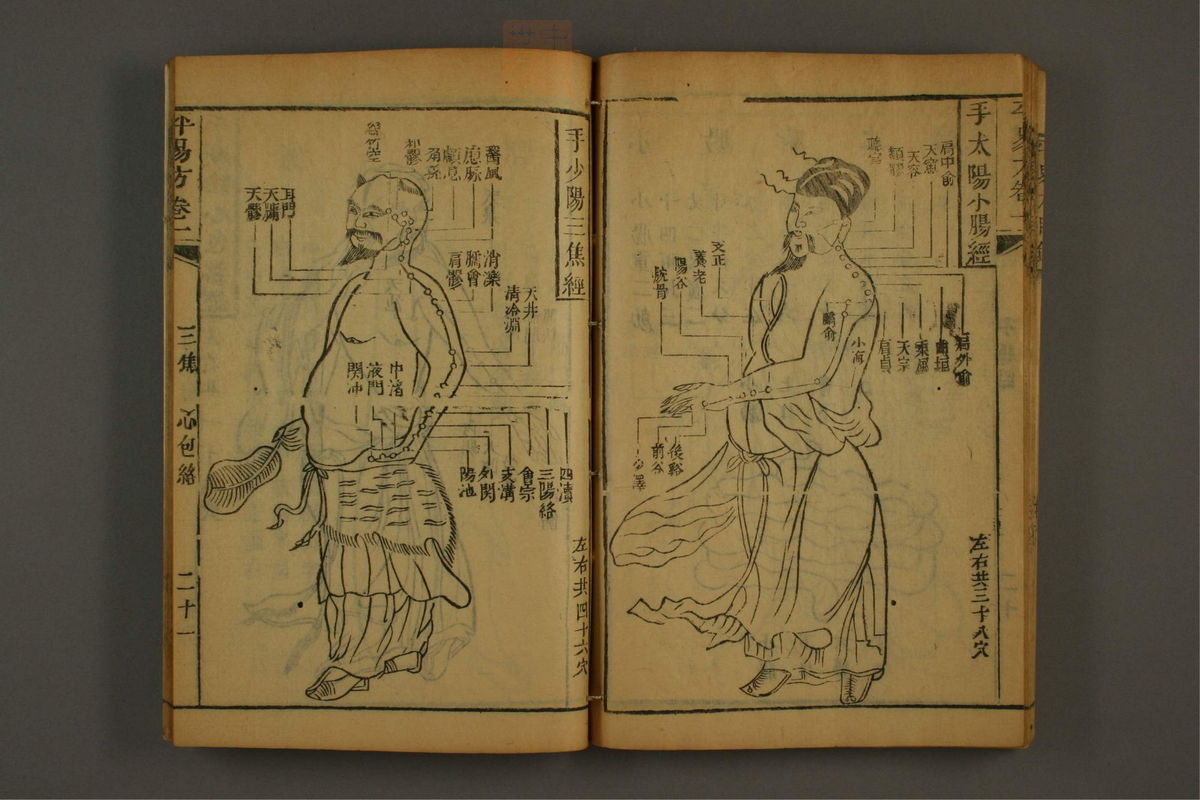 手太陽小腸經
肩中俞
天窗
天容
顴髎
聽宮
支正
養老
陽谷
腕骨
肩外俞
曲垣
秉風
天宗
肩貞
臑俞
小海
後谿
前谷
少澤
左右共三十八穴
手少陽三焦經
翳風
瘈脉
顱息
角孫
和髎
絲竹空
耳門
天牖
天髎
消濼
臑會
肩髎
天井
清冷淵
中渚
液門
関冲
四瀆
三陽絡
會宗
支溝
外関
陽池
左右共四十六穴
方卷二
三焦
心包絡
二十一